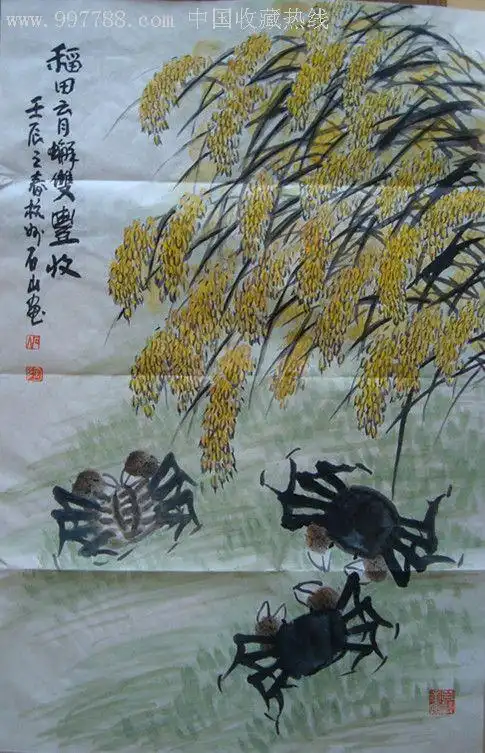 www.997788.com 中国收藏热线
稻田育蠏雙豐收
壬辰之春杭州石山畫